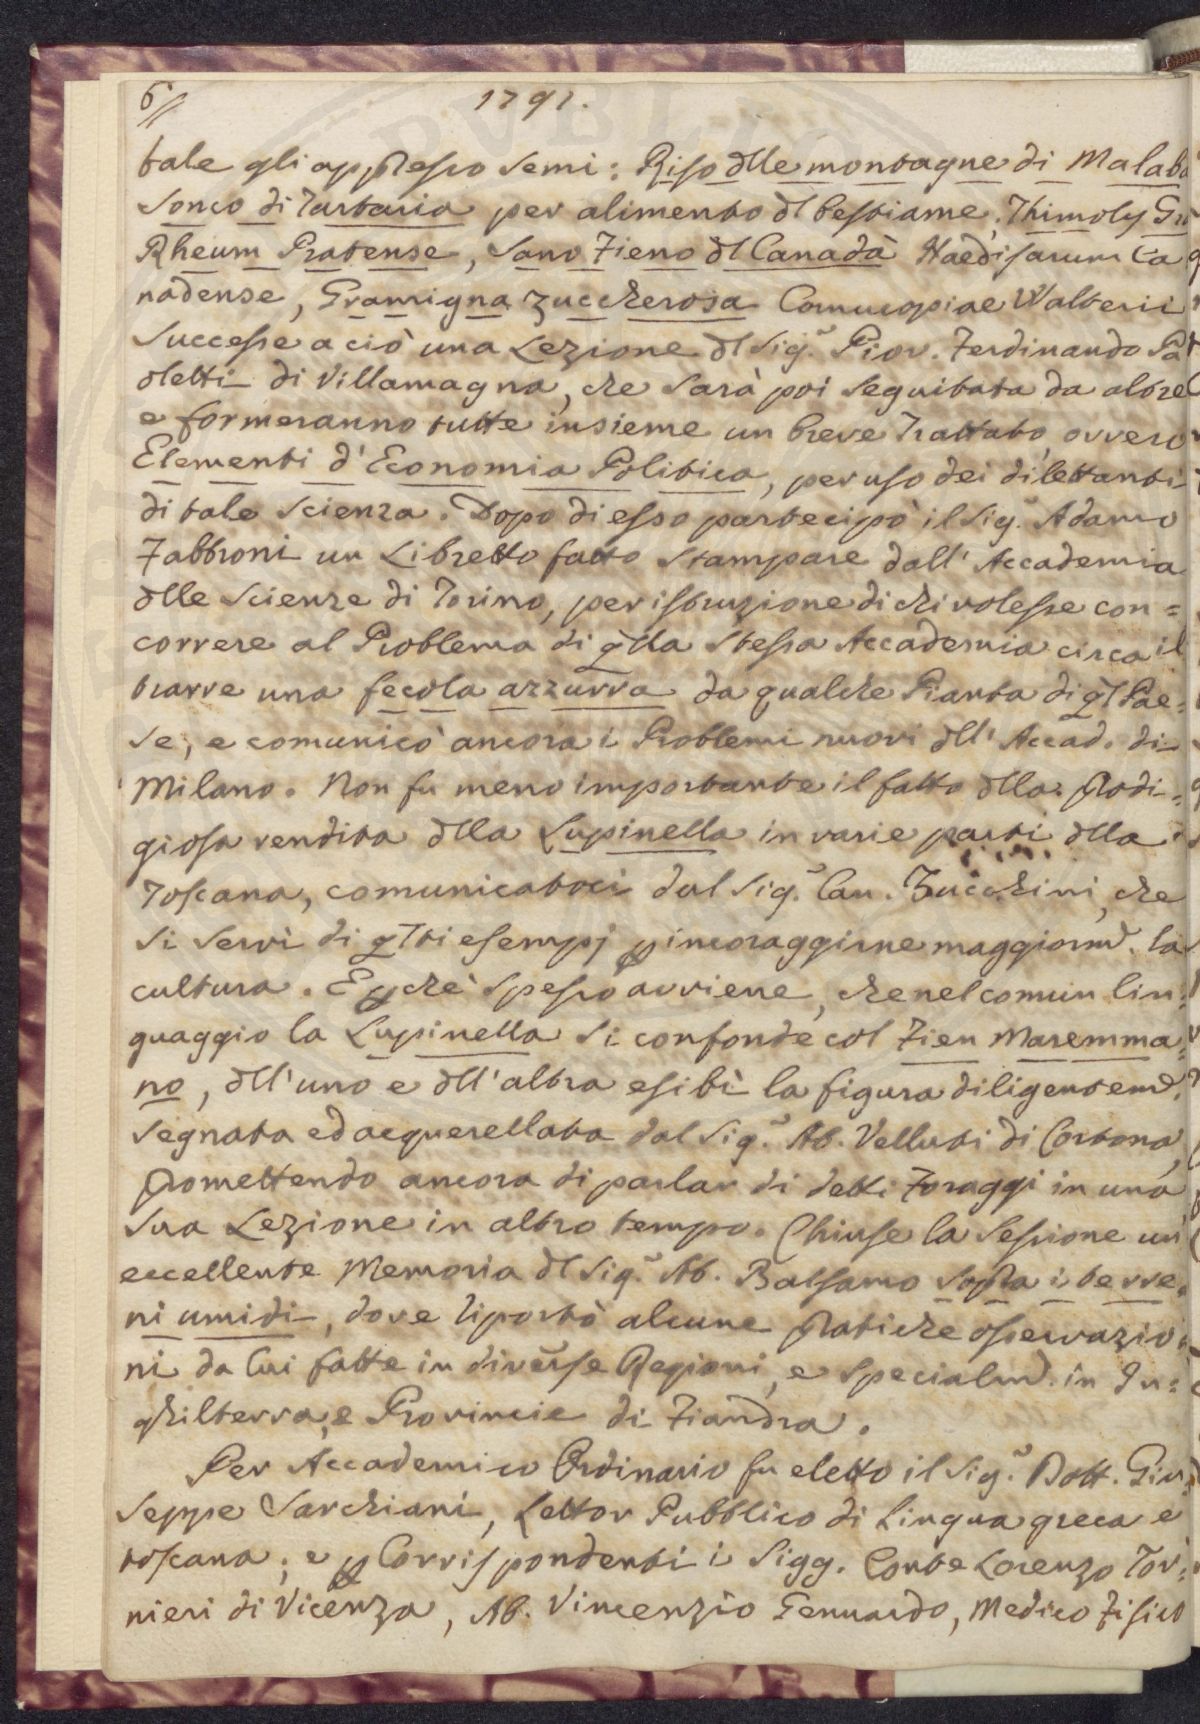 6
1791.
tale gli appresso semi: Riso dlle montagne di Malab
Sonco di Tartaria per alimento dl bestiame, Thimoly Gr
Rheum Pratense, Sano Fieno dl Canadà Haedisarum Ca
nadense, Gramigna zuccherosa Cornucopiae Walterii
Successe a ciò una Lezione dl Sig.r Piov. Ferdinando Pa
oletti di Villamagna, che sarà poi seguitata da altre
e formeranno tutte insieme un breve Trattato, ovvero
Elementi d'Economia Politica, per uso dei dilettanti
di tale scienza. Dopo di esso partecipò il Sig.r Adamo
Fabbroni un Libretto fatto stampare dall'Accademia
dlle Scienze di Torino, per istruzione di chi volesse con=
correre al Problema di qlla stessa Accademia circa il
trarre una fecola azzurra da qualche Pianta di qt Pae=
se, e comunicò ancora i Problemi nuovi dll'Accad. di
Milano. Non fu meno importante il fatto dlla prodi=
giosa vendita dlla Lupinella in varie parti dlla
Toscana, comunicatoci dal Sig.r Cav. Zucchini, che
si servì di qsti esempj p incoraggirne maggiorm. la
cultura. E pchè spesso avviene, che nel comun lin=
guaggio la Lupinella si confonde col Fien Maremma=
no, dll'uno e dll'altra esibì la figura diligentem.
segnata ed acquerellata dal Sig.r Ab. Velluti di Cortona,
promettendo ancora di parlar di detti Foraggi in una
sua Lezione in altro tempo. Chiuse la Sessione un
eccellente Memoria dl Sig.r Ab. Balsamo sopra i terre=
ni umidi, dove riportò alcune pratiche osservazio
ni da lui fatte in diverse Regioni, e specialm. in In=
ghilterra, e Provincie di Fiandra.
Per Accademico Ordinario fu eletto il Sig.r Dott. Giu
seppe Sarchiani, Lettor Pubblico di Lingua greca e
toscana; e p Corrispondenti i Sigg. Conte Lorenzo Tor=
nieri di Vicenza, Ab. Vincenzio Gennardo, Medico Fisico